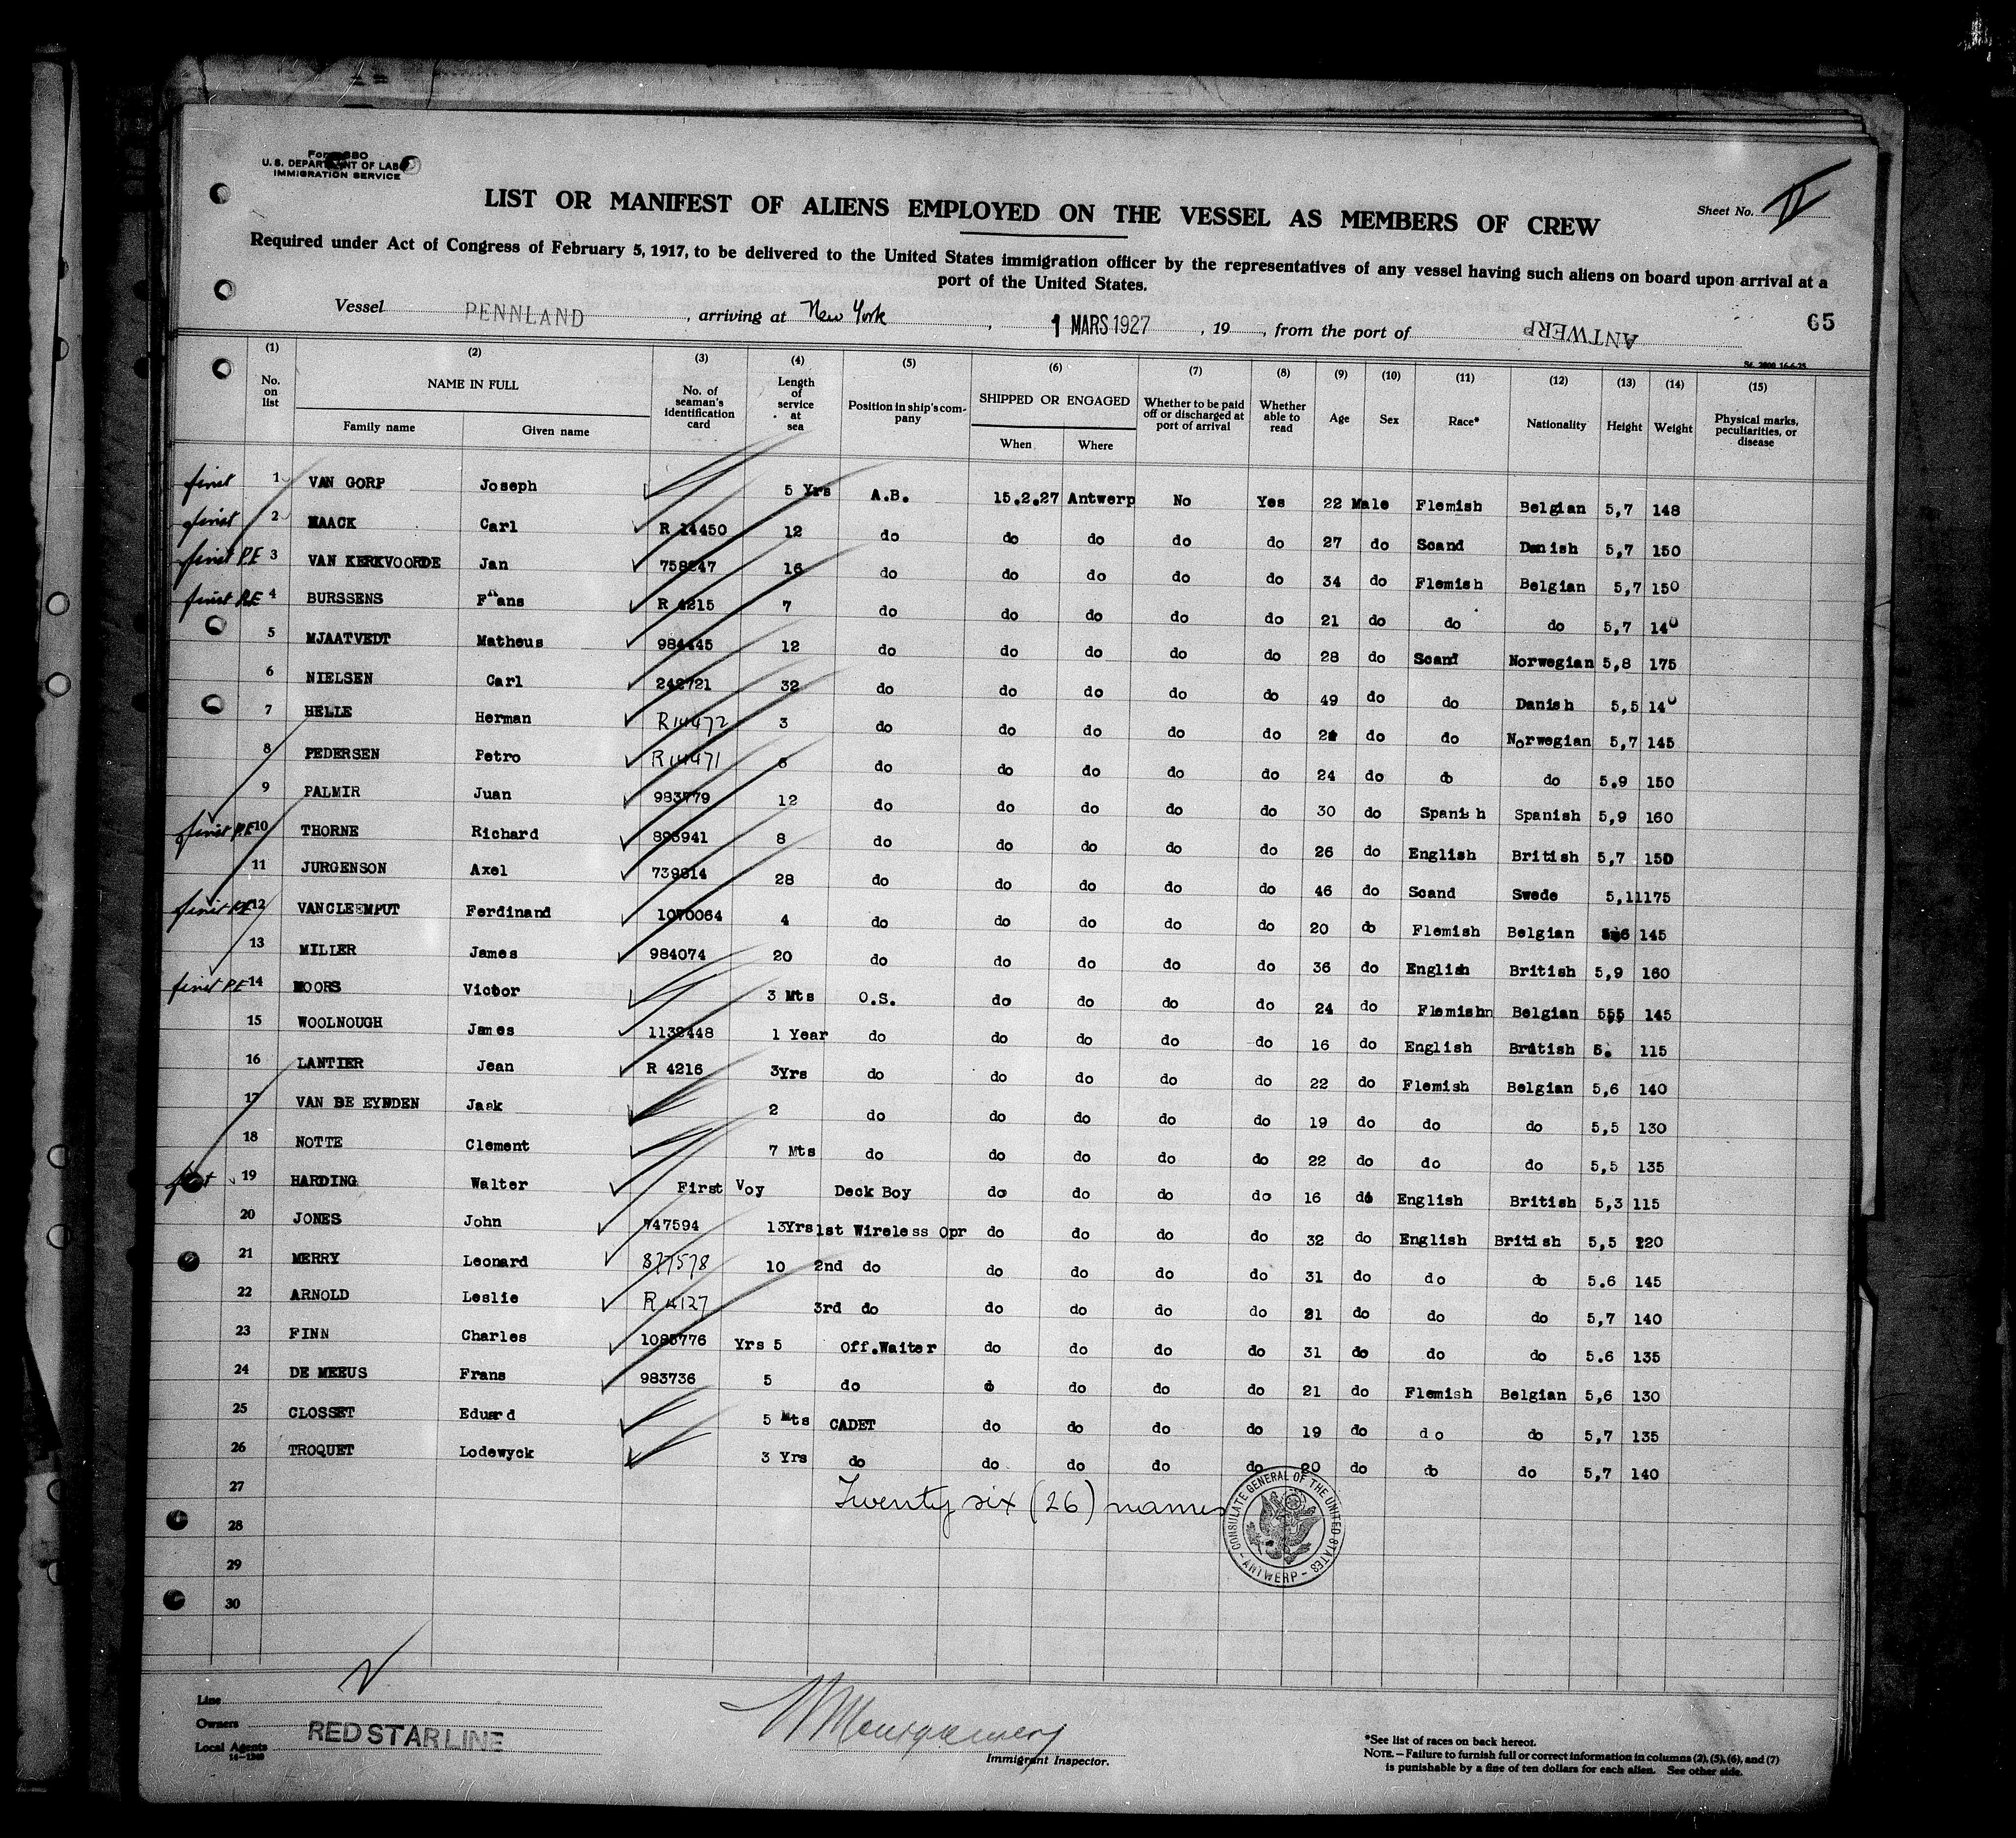 Form 680
U. S. DEPARTMENT OF LABOR
IMMIGRATION SERVICE
LIST OR MANIFEST OF ALIENS EMPLOYED ON THE VESSEL AS MEMBERS OF CREW
Sheet No. II
Required under Act of Congress of February 5, 1917, to be delivered to the United States immigration officer by the representatives of any vessel having such aliens on board upon arrival at a
port of the United States.
Vessel PENNLAND, arriving at New York, 1 MARS 1927, 19, from the port of ANTWERP
65
(1) (2) (3) (4) (5) (6) (7) (8) (9) (10) (11) (12) (13) (14) (15)
No. on list NAME IN FULL Family name Given name No. of seaman's identification card Length of service at sea Position in ship's company SHIPPED OR ENGAGED When Where Whether to be paid off or discharged at port of arrival Whether able to read Age Sex Race* Nationality Height Weight Physical marks, peculiarities, or disease
first 1 VAN GORP Joseph 5 Yrs A.B. 15.2.27 Antwerp No Yes 22 Male Flemish Belgian 5,7 148
first 2 MAACK Carl R 14450 12 do do do do do 27 do Scand Danish 5,7 150
first P.E 3 VAN KERKVOORDE Jan 758247 16 do do do do do 34 do Flemish Belgian 5,7 150
first P.E 4 BURSSENS Frans R 4215 7 do do do do do 21 do do do 5,7 140
5 MJAATVEDT Matheus 984445 12 do do do do do 28 do Scand Norwegian 5,8 175
6 NIELSEN Carl 242721 32 do do do do do 49 do do Danish 5,5 140
7 HELLE Herman R14472 3 do do do do do do do Norwegian 5,7 145
8 PEDERSEN Petro R14471 6 do do do do do 24 do do do 5.9 150
9 PALMIR Juan 983779 12 do do do do do 30 do Spanish Spanish 5,9 160
first P.E 10 THORNE Richard 893941 8 do do do do do 26 do English British 5,7 150
11 JURGENSON Axel 739814 28 do do do do do 46 do Scand Swede 5,11 175
first P.E 12 VANCLEEMPUT Ferdinand 1070064 4 do do do do do 20 do Flemish Belgian 145
13 MILLER James 984074 20 do do do do do 36 do English British 5,9 160
first P.E 14 MOORS Victor 3 Mts O.S. do do do do 24 do Flemishn Belgian 555 145
15 WOOLNOUGH James 1138448 1 Year do do do do do 16 do English British 5. 115
16 LANTIER Jean R 4216 3Yrs do do do do do 22 do Flemish Belgian 5,6 140
17 VAN DE EYNDEN Jack 2 do do do do do 19 do do do 5,5 130
18 NOTTE Clement 7 Mts do do do do do 22 do do do 5,5 135
first 19 HARDING Walter First Voy Deck Boy do do do do 16 do English British 5,3 115
20 JONES John 747594 13Yrs 1st Wireless Opr do do do do 32 do English British 5,5 120
21 MERRY Leonard 877578 10 2nd do do do do do 31 do do do 5.6 145
22 ARNOLD Leslie R 4127 3rd do do do do do 21 do do do 5,7 140
23 FINN Charles 1085776 Yrs 5 Off.Waiter do do do do 31 do do do 5.6 135
24 DE MEEUS Frans 983736 5 do do do do do 21 do Flemish Belgian 5,6 130
25 CLOSSET Eduard 5 Mts CADET do do do do 19 do do do 5,7 135
26 TROQUET Lodewyck 3 Yrs do do do do do 20 do do do 5,7 140
27
Twenty six (26) names
28
29
30
CONSULATE GENERAL OF THE UNITED STATES - ANTWERP -
Line
Owners
Local Agents
RED STAR LINE
14-1240
Montgomery
Immigrant Inspector.
*See list of races on back hereof.
NOTE.—Failure to furnish full or correct information in columns (2), (5), (6), and (7)
is punishable by a fine of ten dollars for each alien. See other side.